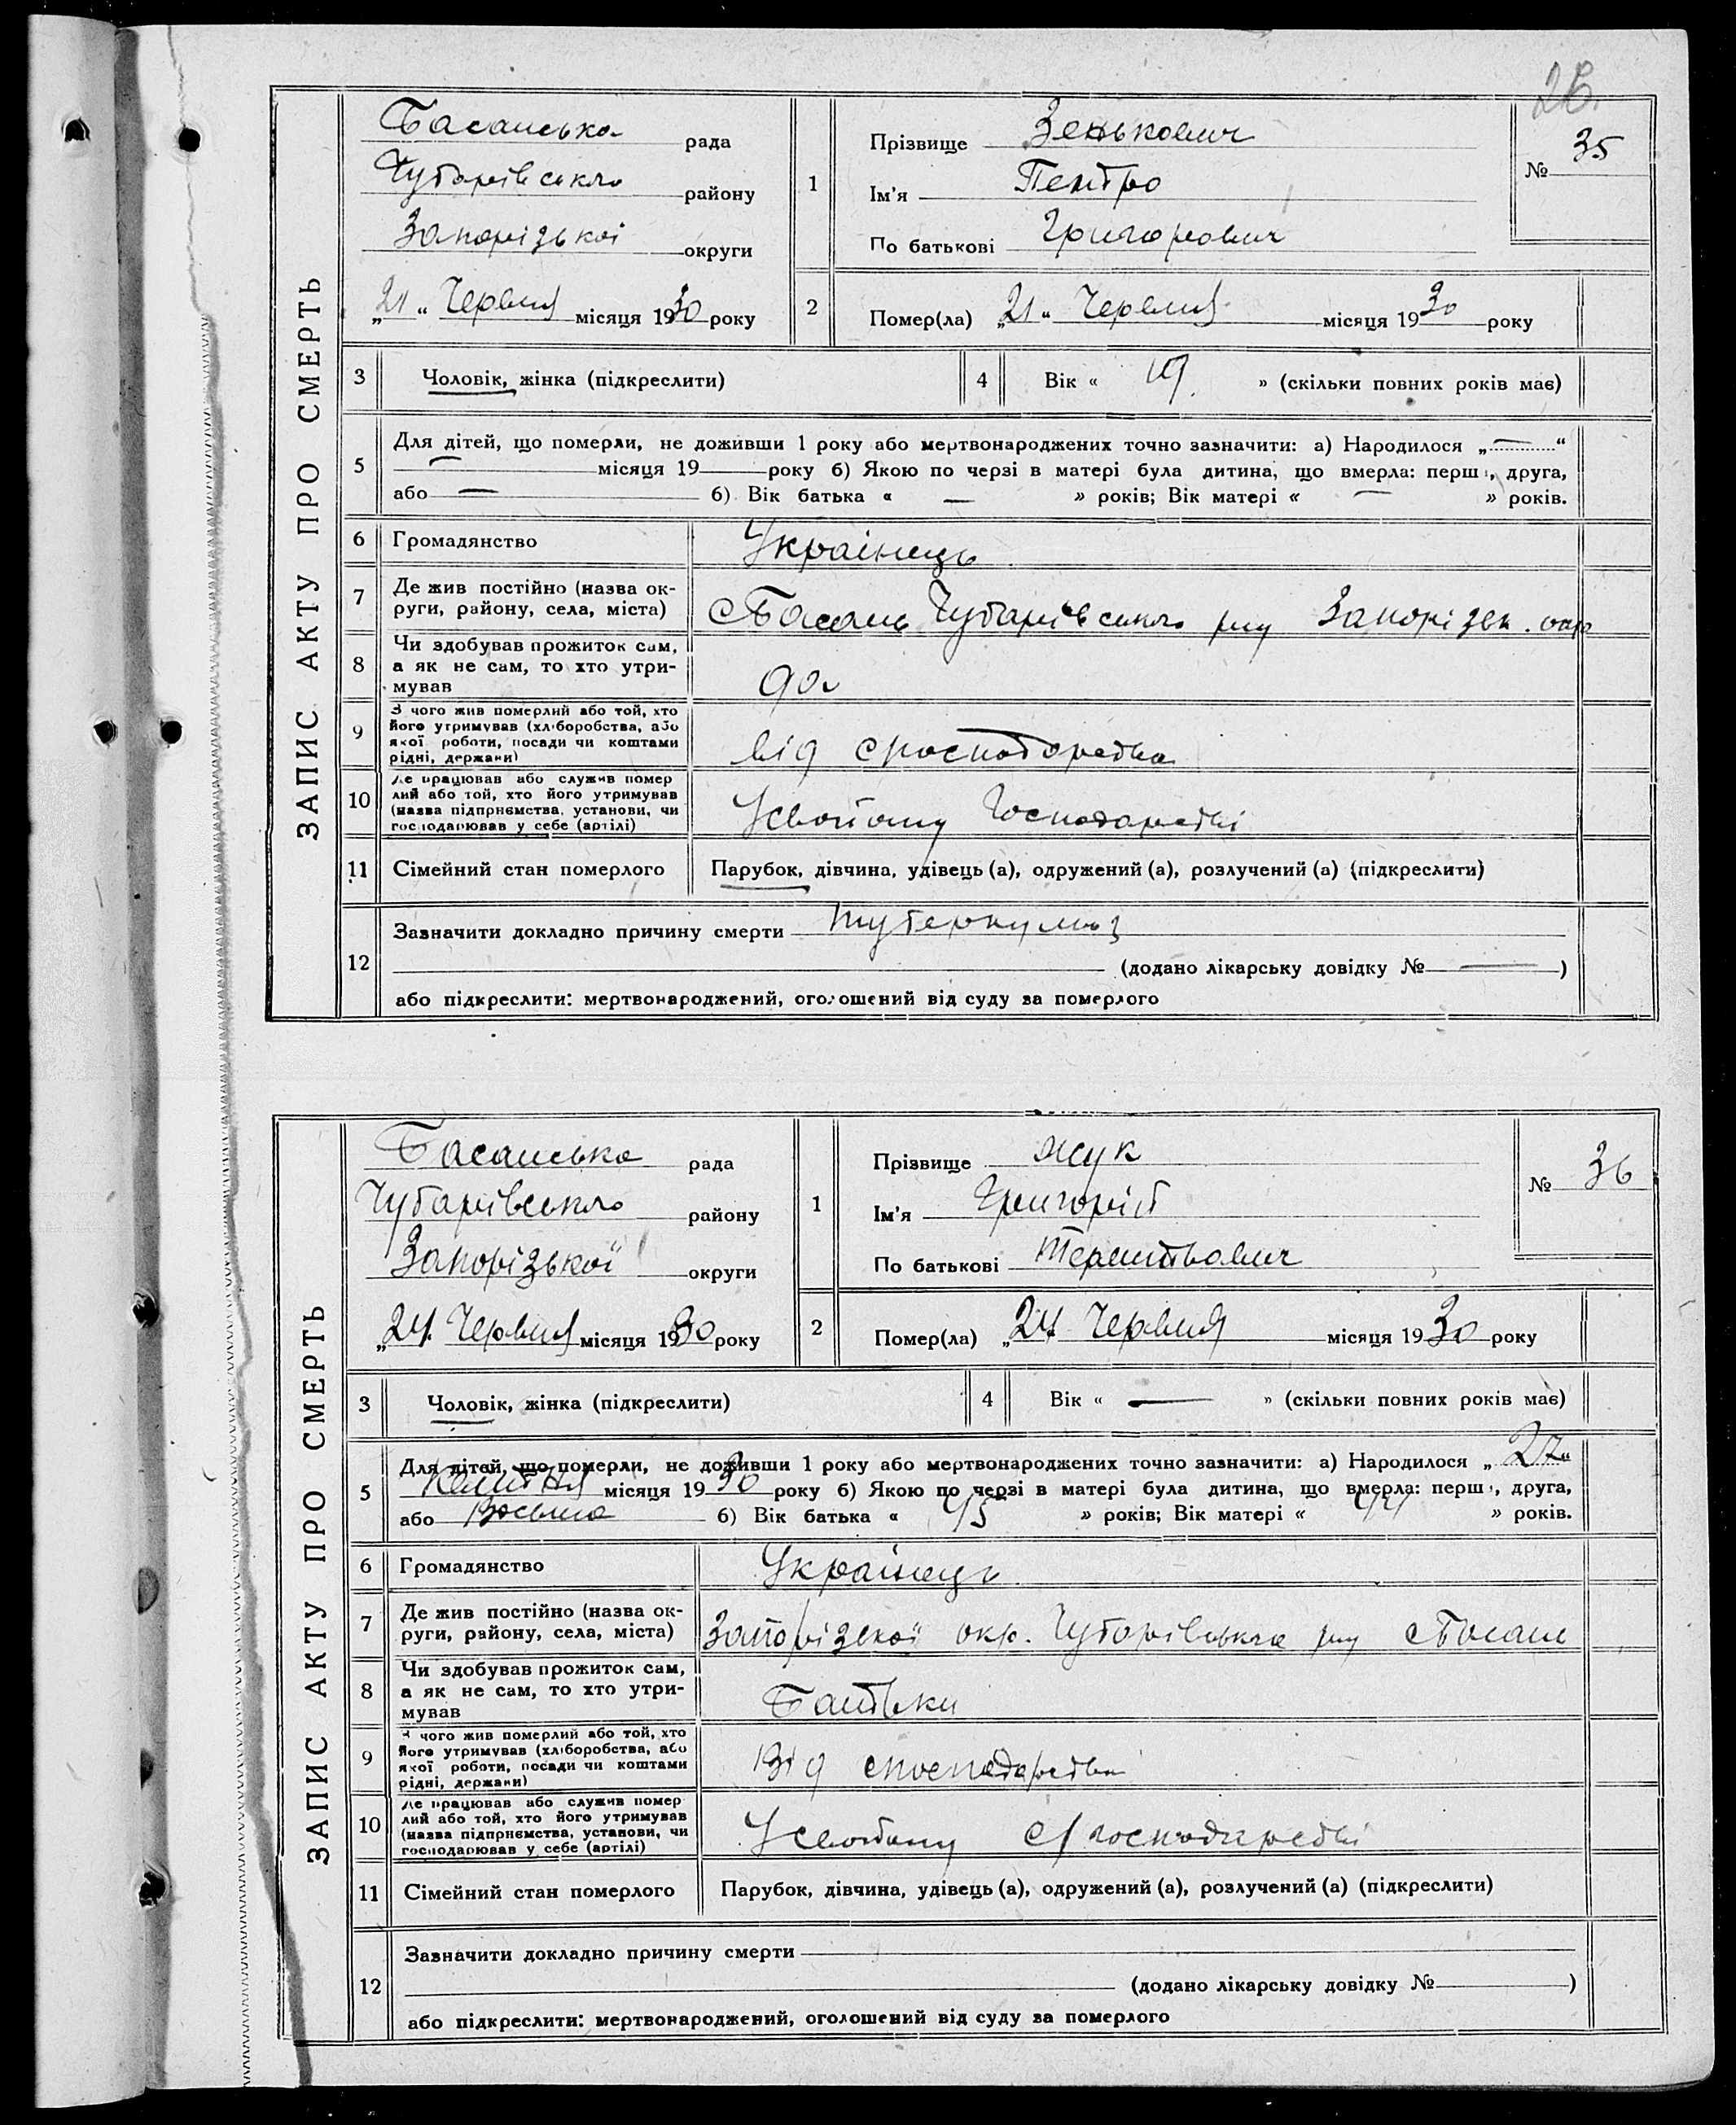 26.
ЗАПИС АКТУ ПРО СМЕРТЬ
Басанська рада
Чубарівськго району
Запорізькоі округи
„21“ Червня місяця 1930 року
1
Прізвище Зенькович
Ім'я Пентро
По батькові Григорович
№ 35
2
Помер(ла) „21“ Червня місяця 1930 року
3 Чоловік, жінка (підкреслити)
4 Вік « 19 » (скільки повних років має)
5 Для дітей, що померли, не доживши 1 року або мертвонароджених точно зазначити: а) Народилося „—“
— місяця 19 року б) Якою по черзі в матері була дитина, що вмерла: перш, друга,
або — б) Вік батька « — » років; Вік матері « — » років.
6 Громадянство Украінець
7 Де жив постійно (назва ок-
руги, району, села, міста) с Басань Чубарівськго р-ну Запорізьк. окр
8 Чи здобував прожиток сам,
а як не сам, то хто утри-
мував
9 З чого жив померлий або той, хто
його утримував (хліборобства, або
якої роботи, посади чи коштами
рідні, держави) від с господарства
10 Де працював або служив помер
лий або той, хто його утримував
(назва підприємства, установи, чи
господарював у себе (артілі) Усвойому господарстві
11 Сімейний стан померлого Парубок, дівчина, удівець (а), одружений (а), розлучений (а) (підкреслити)
12 Зазначити докладно причину смерти туберкульоз
(додано лікарську довідку № — )
або підкреслити: мертвонароджений, оголошений від суду за померлого
ЗАПИС АКТУ ПРО СМЕРТЬ
Басанська рада
Чубарівськго району
Запорізької округи
„24 Червня місяця 1930 року
1
Прізвище Жук
Ім'я Григорій
По батькові Терентьович
№ 36
2
Помер(ла) „24 Червня місяця 1930 року
3 Чоловік, жінка (підкреслити)
4 Вік « — » (скільки повних років має)
5 Для дітей, що померли, не доживши 1 року або мертвонароджених точно зазначити: а) Народилося „27“
Квітня місяця 1930 року б) Якою по черзі в матері була дитина, що вмерла: перш, друга,
або Восьма б) Вік батька « 45 » років; Вік матері « 44 » років.
6 Громадянство Украінець
7 Де жив постійно (назва ок-
руги, району, села, міста) Запорізької окр. Чубарівського р-ну с Басань
8 Чи здобував прожиток сам,
а як не сам, то хто утри-
мував Батьки
9 З чого жив померлий або той, хто
його утримував (хліборобства, або
якої роботи, посади чи коштами
рідні, держави) Від с господарства
10 Де працював або служив помер
лий або той, хто його утримував
(назва підприємства, установи, чи
господарював у себе (артілі) Усвойому с/господарстві
11 Сімейний стан померлого Парубок, дівчина, удівець (а), одружений (а), розлучений (а) (підкреслити)
12 Зазначити докладно причину смерти
(додано лікарську довідку № )
або підкреслити: мертвонароджений, оголошений від суду за померлого